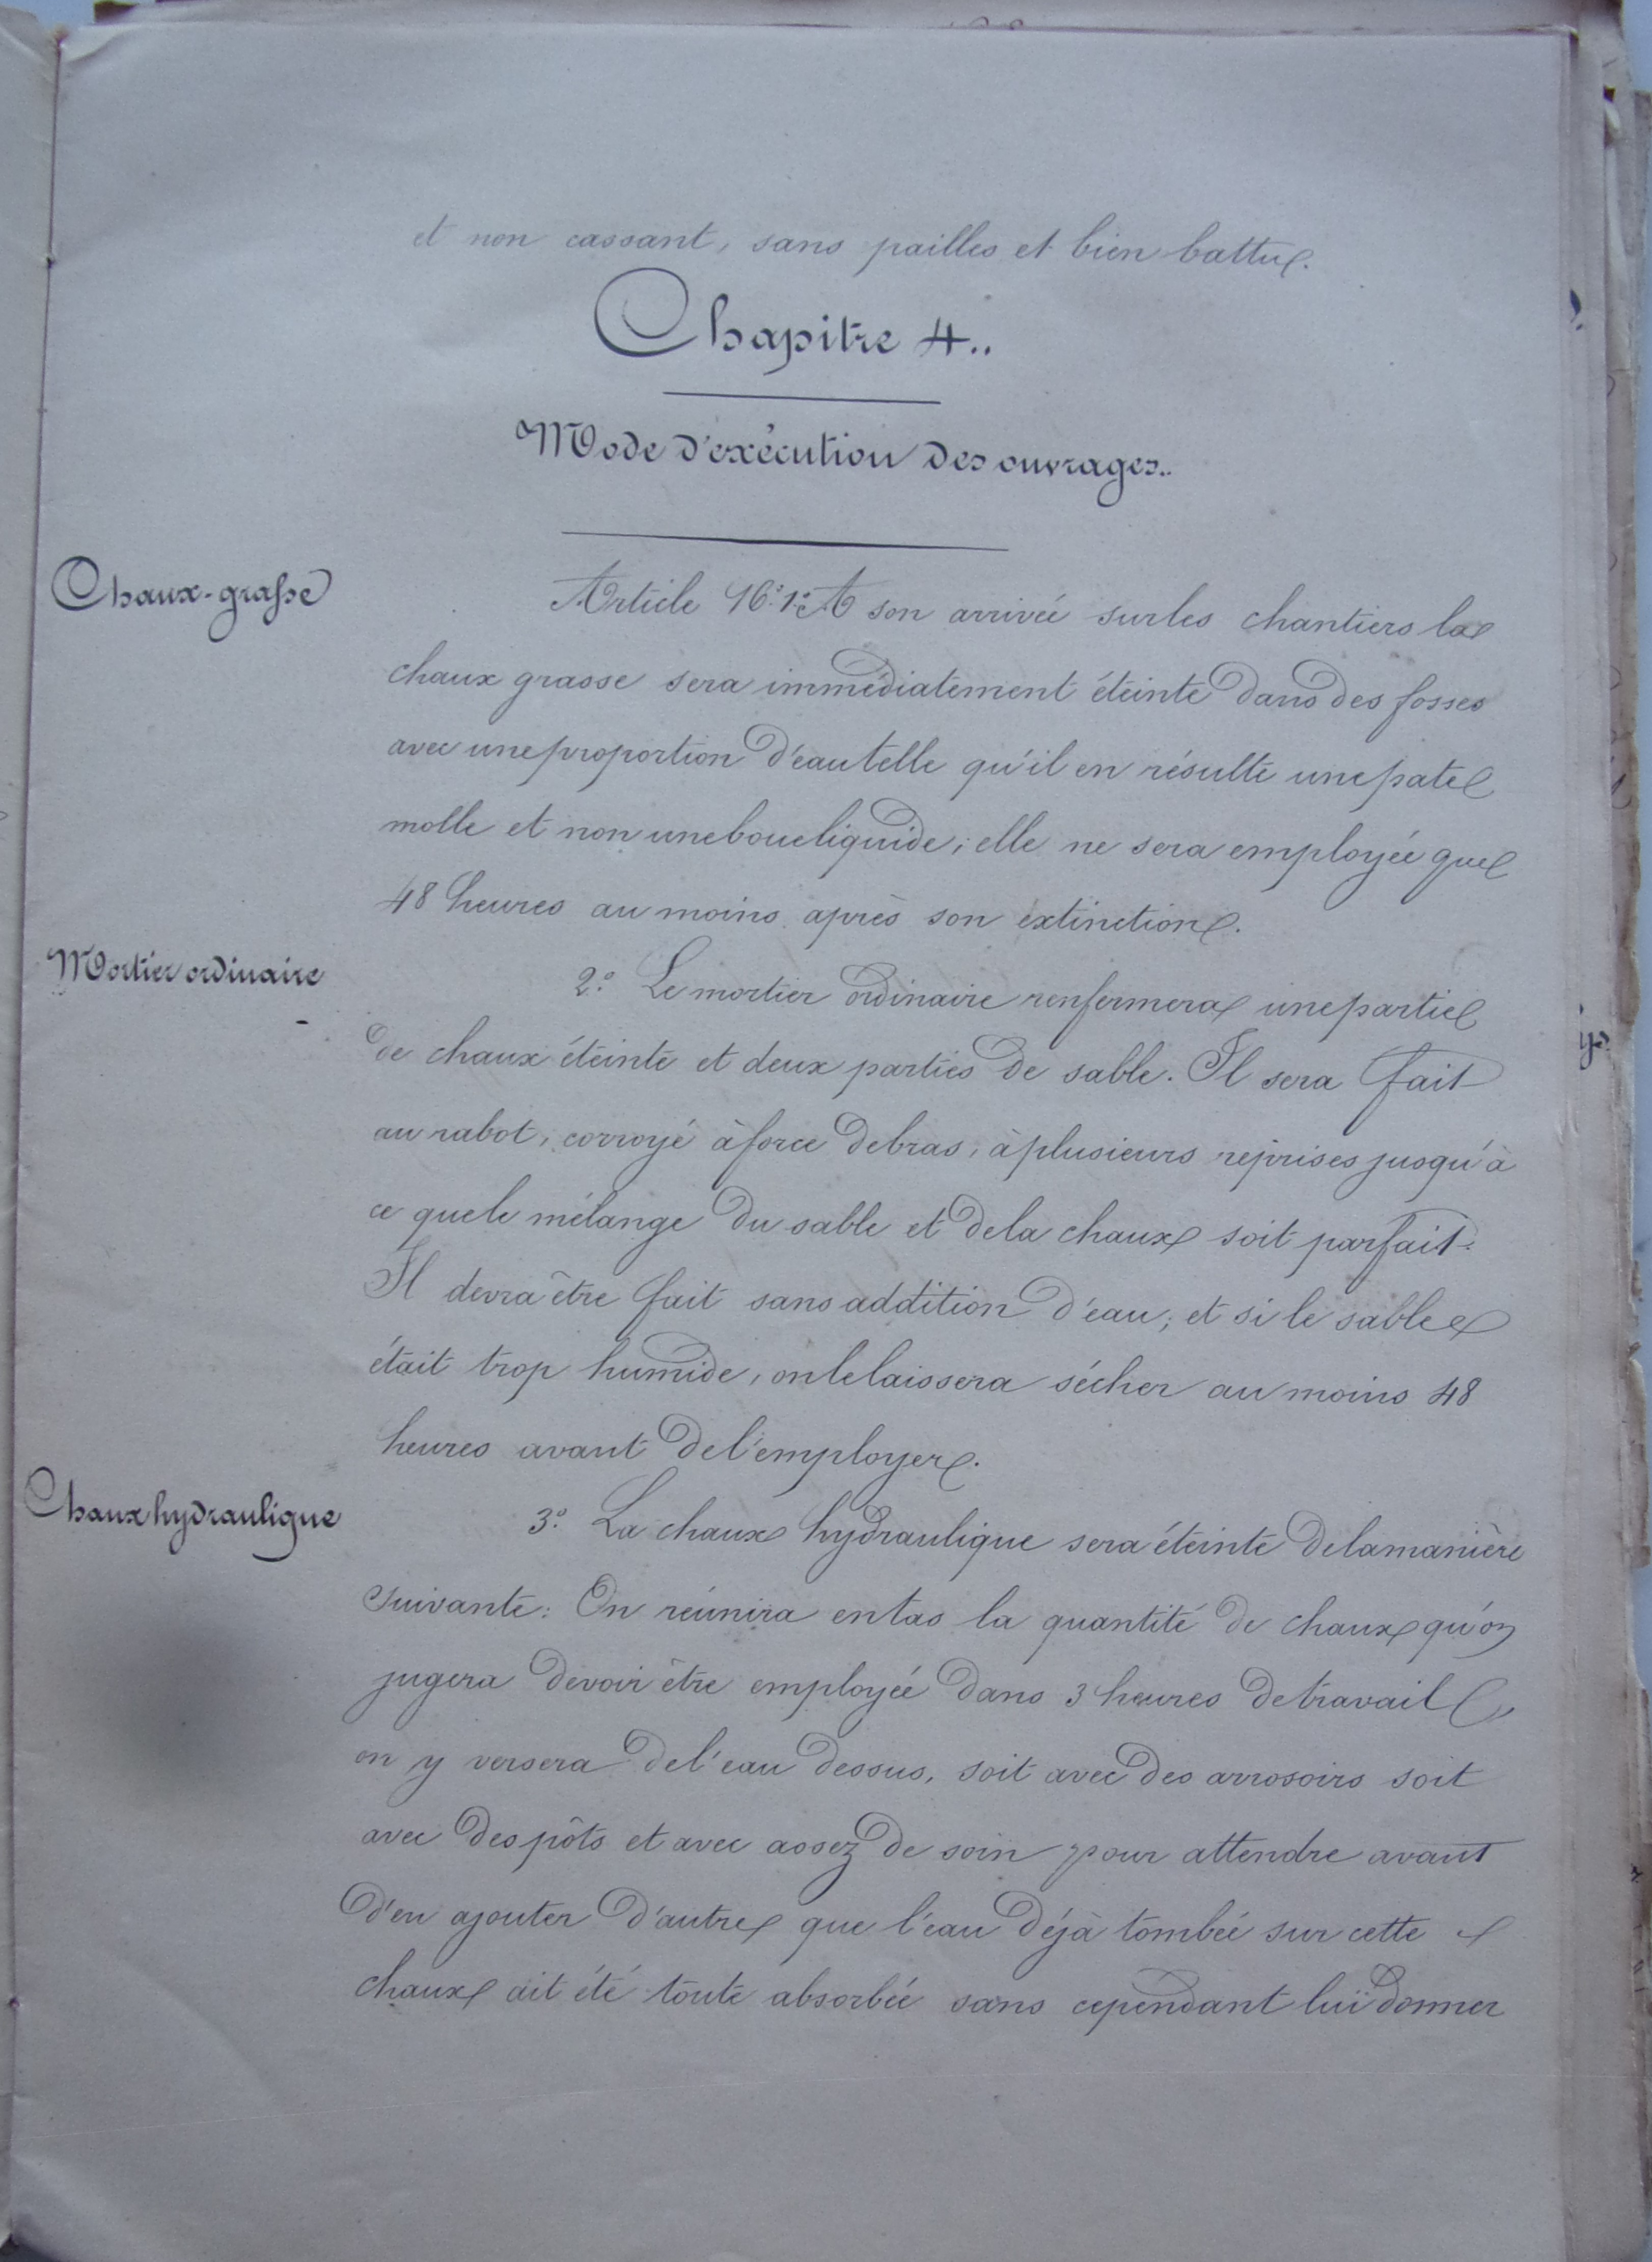 et non cassant, sans pailles et bien battu.
Chapitre 4..
Mode d'exécution des ouvrages..
Chaux-grasse
Article 16. 1.° A son arrivée sur les chantiers la
chaux grasse sera immédiatement éteinte dans des fosses
avec une proportion d'eau telle qu'il en résulte une pate
molle et non une boue liquide; elle ne sera employée que
48 heures au moins après son extinction.
Mortier ordinaire
2.° Le mortier ordinaire renfermera une partie
de chaux éteinte et deux parties de sable. Il sera fait
au rabot, corroyé à force de bras, à plusieurs reprises jusqu'à
ce que le mélange du sable et de la chaux soit parfait.
Il devra être fait sans addition d'eau; et si le sable
était trop humide, on le laissera sécher au moins 48
heures avant de l'employer.
Chaux hydraulique
3.° La chaux hydraulique sera éteinte de la manière
suivante: On réunira en tas la quantité de chaux qu'on
jugera devoir être employée dans 3 heures de travail,
on y versera de l'eau dessus, soit avec des arrosoirs soit
avec des pôts et avec assez de soin pour attendre avant
d'en ajouter d'autre que l'eau déjà tombée sur cette
chaux ait été toute absorbée sans cependant lui donner